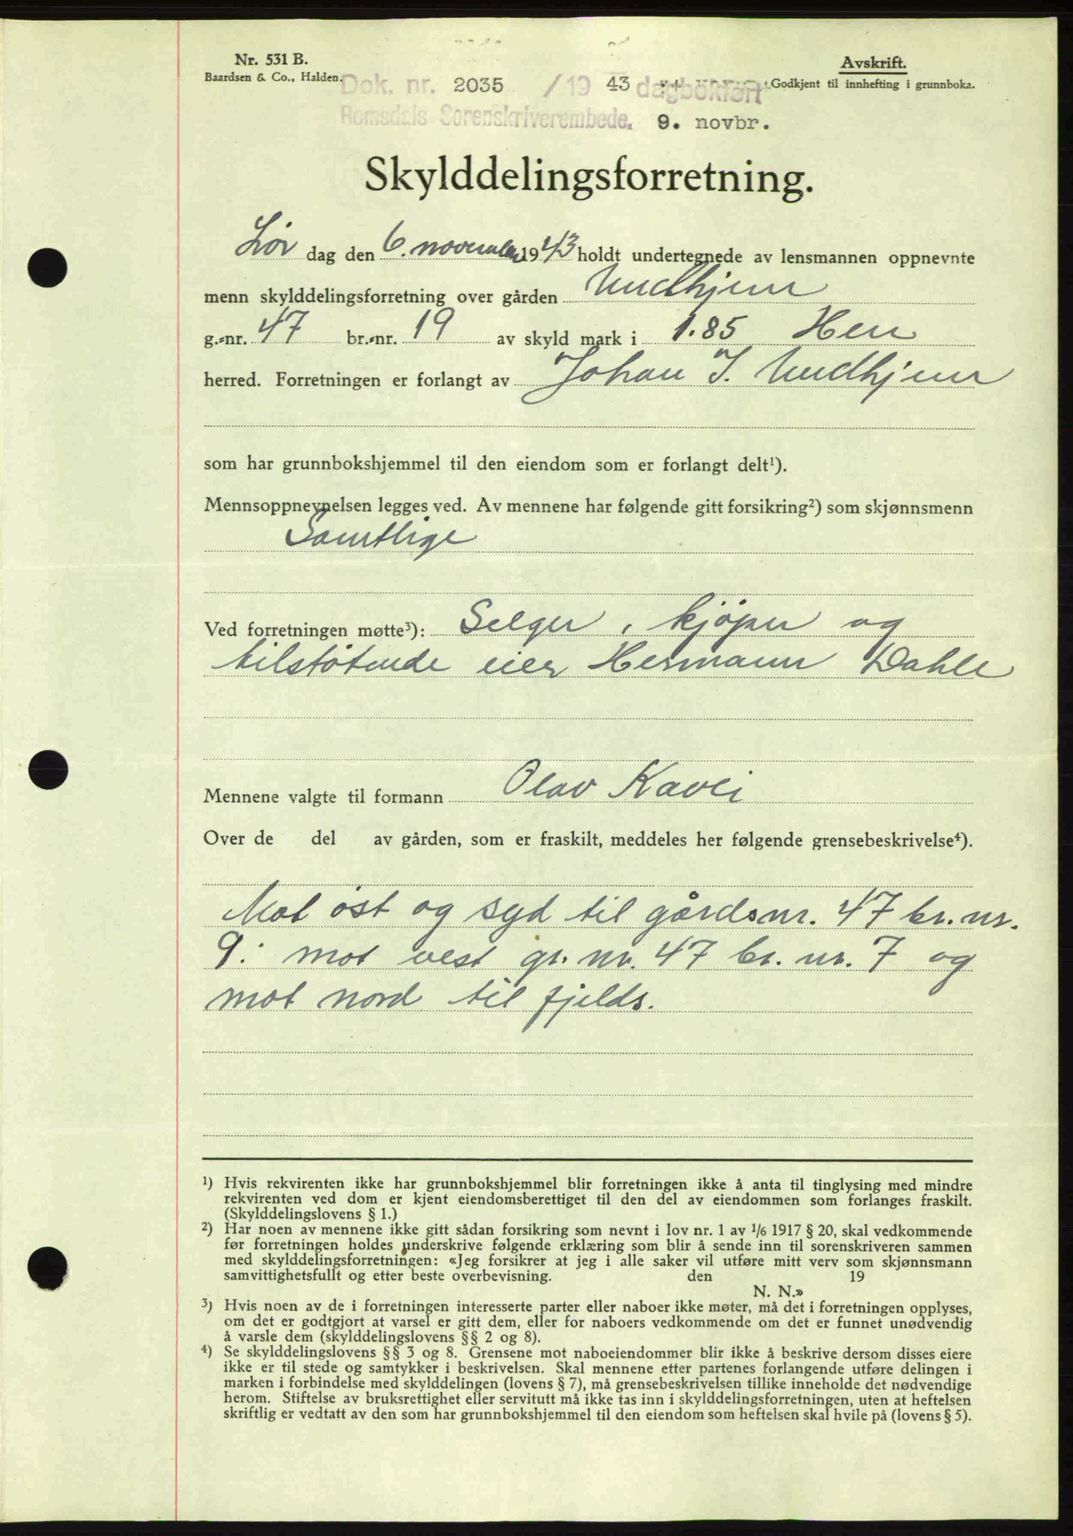 Nr. 531 B.
Baardsen & Co., Halden.
Avskrift.
Godkjent til innhefting i grunnboka.
Dok. nr. 2035 /19 43 dagbokført
Romsdals Sorenskriverembede. 9. novbr.
Skylddelingsforretning.
Lør dag den 6. november 1943 holdt undertegnede av lensmannen oppnevnte
menn skylddelingsforretning over gården Undhjem
g.-nr. 47 br.-nr. 19 av skyld mark i 1.85 Hen
herred. Forretningen er forlangt av Johan J. Undhjem
som har grunnbokshjemmel til den eiendom som er forlangt delt¹).
Mennsoppnevnelsen legges ved. Av mennene har følgende gitt forsikring²) som skjønnsmenn
Samtlige
Ved forretningen møtte³): Selger, kjøper og
tilstøtende eier Hermann Dahle
Mennene valgte til formann Olav Kavli
Over de del av gården, som er fraskilt, meddeles her følgende grensebeskrivelse⁴).
Mot øst og syd til gårdsnr. 47 br. nr.
9: mot vest gr. nr. 47 br. nr. 7 og
mot nord til fjelds.
¹) Hvis rekvirenten ikke har grunnbokshjemmel blir forretningen ikke å anta til tinglysing med mindre
rekvirenten ved dom er kjent eiendomsberettiget til den del av eiendommen som forlanges fraskilt.
(Skylddelingslovens § 1.)
²) Har noen av mennene ikke gitt sådan forsikring som nevnt i lov nr. 1 av ¹/6 1917 § 20, skal vedkommende
før forretningen holdes underskrive følgende erklæring som blir å sende inn til sorenskriveren sammen
med skylddelingsforretningen: «Jeg forsikrer at jeg i alle saker vil utføre mitt verv som skjønnsmann
samvittighetsfullt og etter beste overbevisning. den 19
N. N.»
³) Hvis noen av de i forretningen interesserte parter eller naboer ikke møter, må det i forretningen opplyses,
om det er godtgjort at varsel er gitt dem, eller for naboers vedkommende om det er funnet unødvendig
å varsle dem (skylddelingslovens §§ 2 og 8).
⁴) Se skylddelingslovens §§ 3 og 8. Grensene mot naboeiendommer blir ikke å beskrive dersom disses eiere
ikke er til stede og samtykker i beskrivelsen. Skal mennene etter partenes forlangende utføre delingen i
marken i forbindelse med skylddelingen (lovens § 7), må grensebeskrivelsen tillike inneholde det nødvendige
herom. Stiftelse av bruksrettighet eller servitutt må ikke tas inn i skylddelingsforretningen, uten at heftelsen
skriftlig er vedtatt av den som har grunnbokshjemmel til den eiendom som heftelsen skal hvile på (lovens § 5).